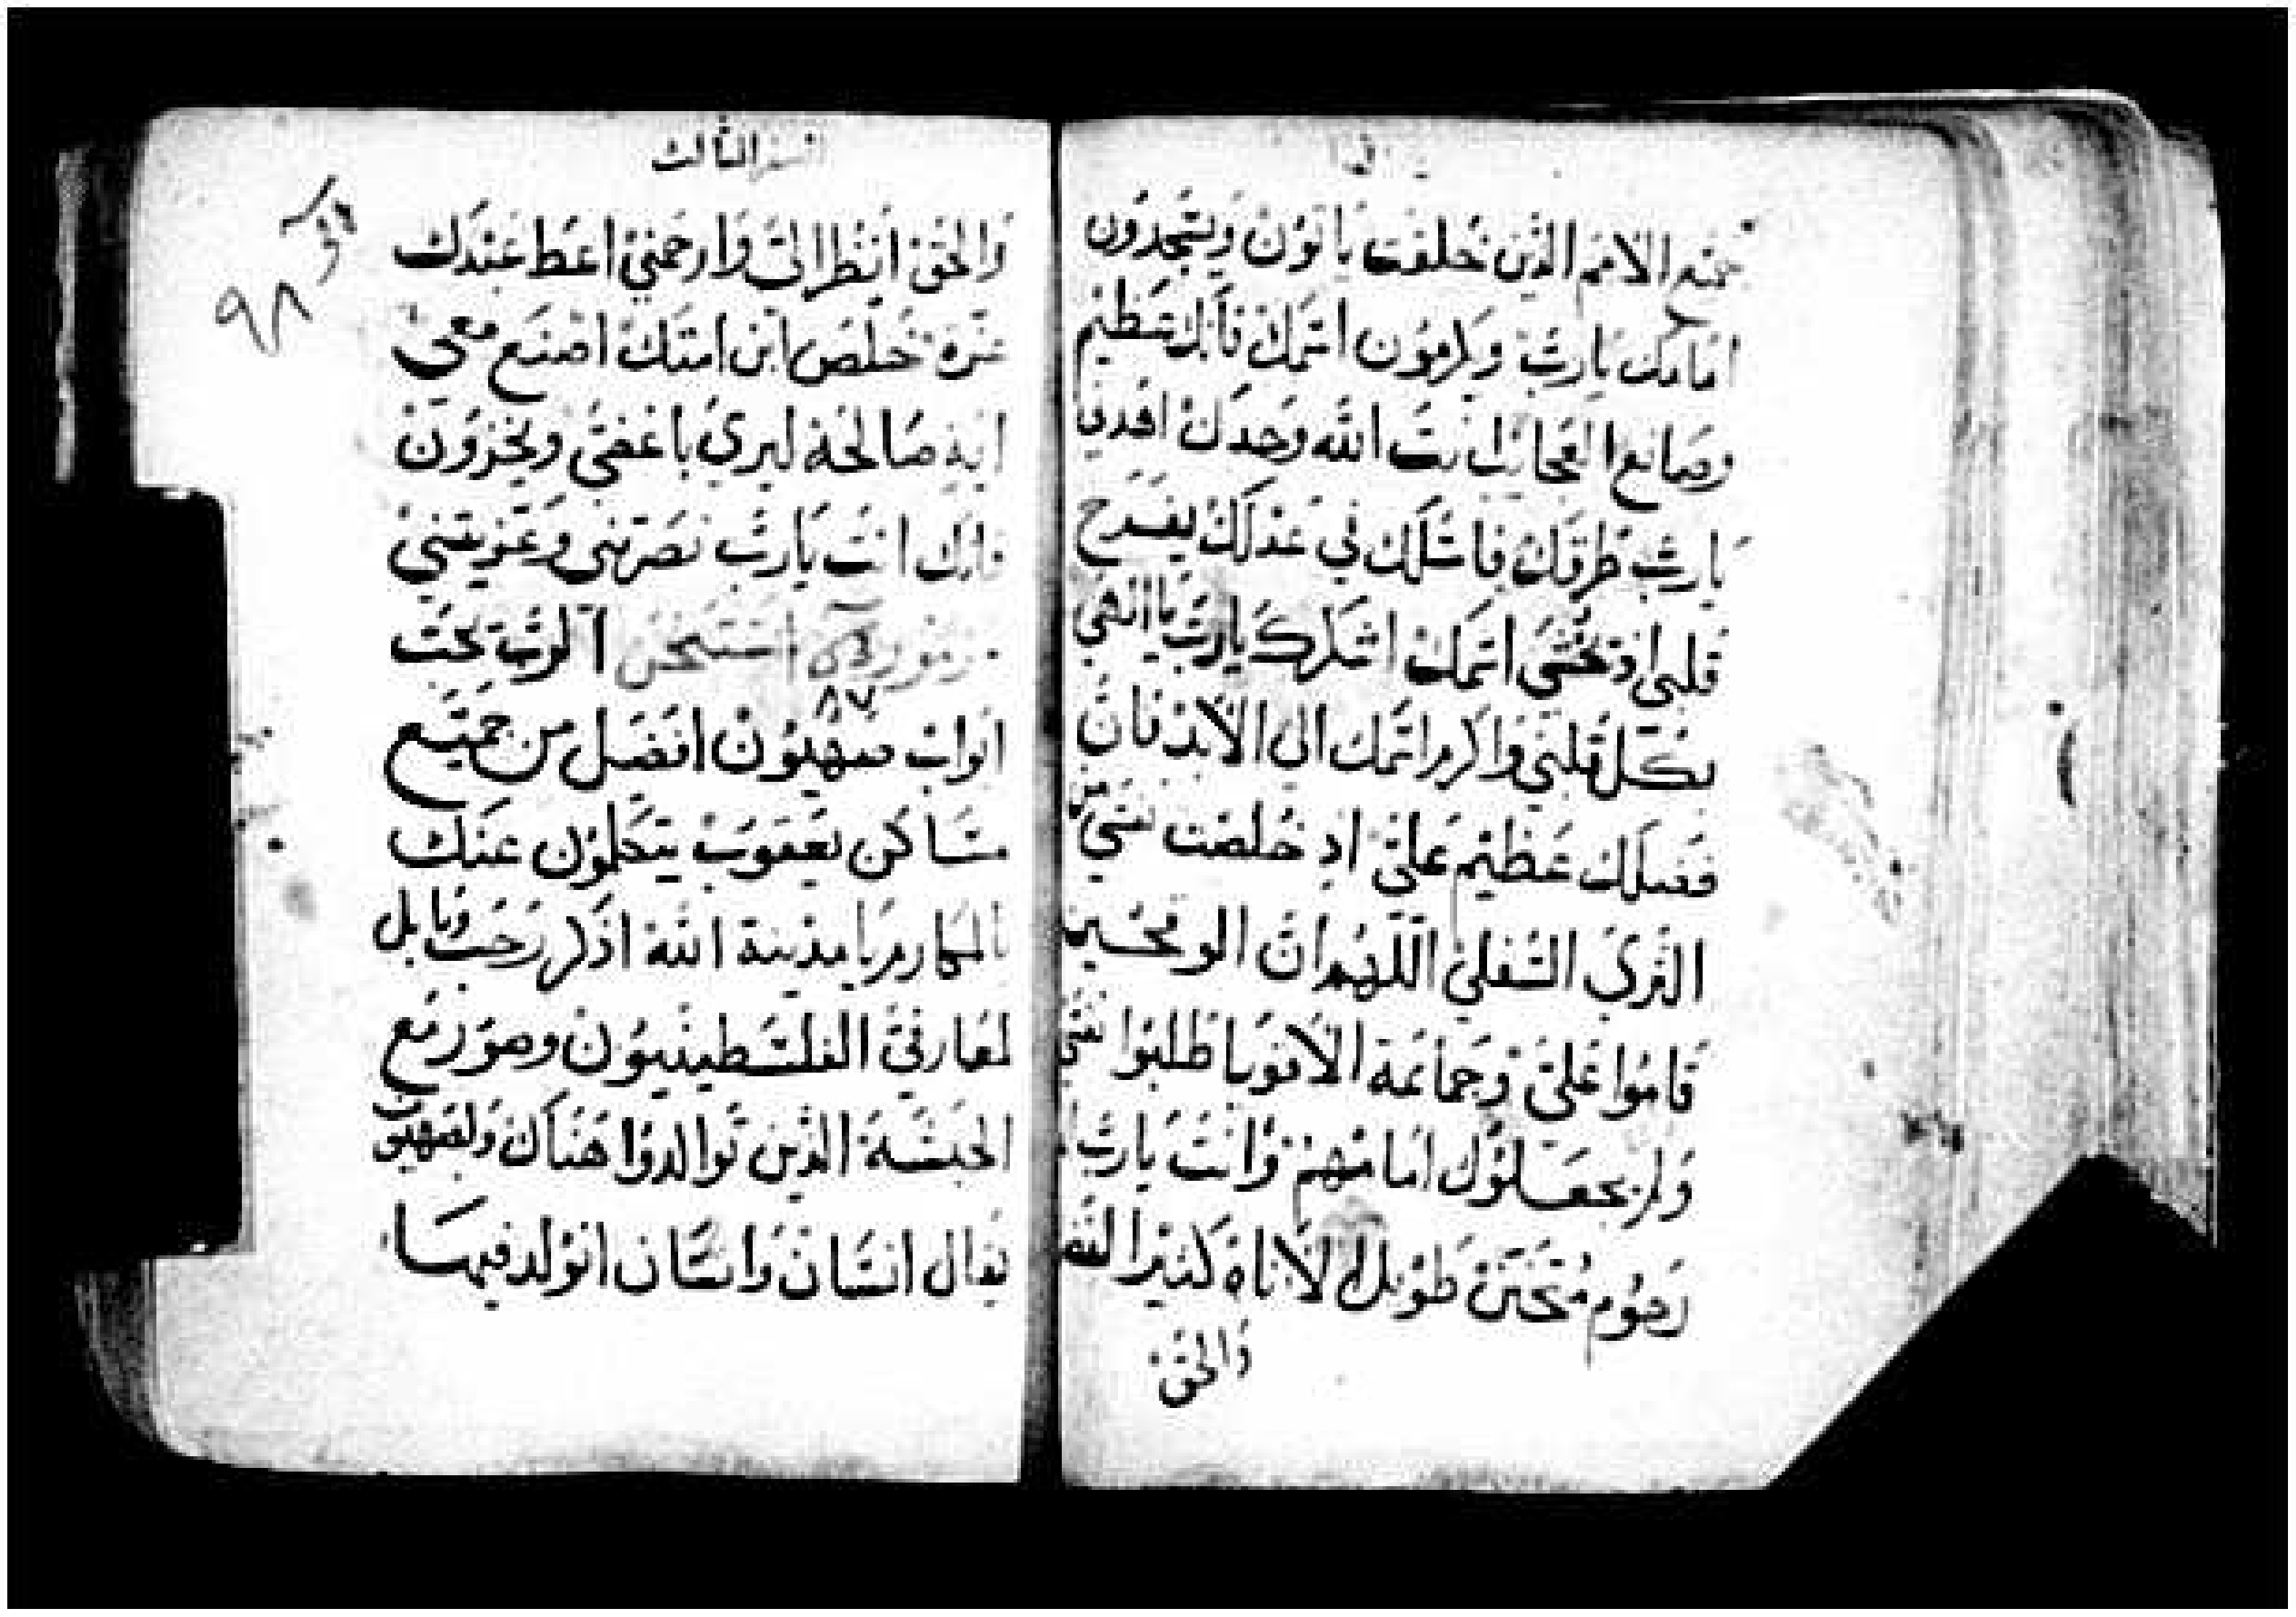 جميع الامم الذين خلقت يأتون ويسجدون
امامك يا رب ويكرمون اسمك فأنك عظيم
وصانع العجايب انت الله وحدك اهدني
يا رب طرقك فاسلك في عدلك ليفرح
قلبي اذ تخشى اسمك اشكرك يا رب يا الهي
بكل قلبي واكرم اسمك الى الابد فان
فضلك عظيم علي اذ خلصت نفسي من
الثرى السفلي اللهم ان الوقحين
قاموا علي وجماعة الاقويا طلبوا نفسي
ولم يجعلوك امامهم وانت يا رب
رحوم متحنن طويل الاناه كثير النعمه
والحق
السفر الثالث
٩٨
والحق انظر الي وارحمني اعط عبدك
عزة خلص ابن امتك اصنع معي
اية صالحة ليرى باغضي ويخزون
فانك انت يا رب نصرتني وعزيتني
مزمور آلرب يحب
٨٧
ابواب صهيون افضل من جميع
مساكن يعقوب يتكلمون عنك
بالمكارم يا مدينة الله اذكر رحب وبابل
لمعارفي الفلسطينيون وصور مع
الحبشة الذين توالدوا هناك ولصهيون
يقال انسان وانسان انولد فيها